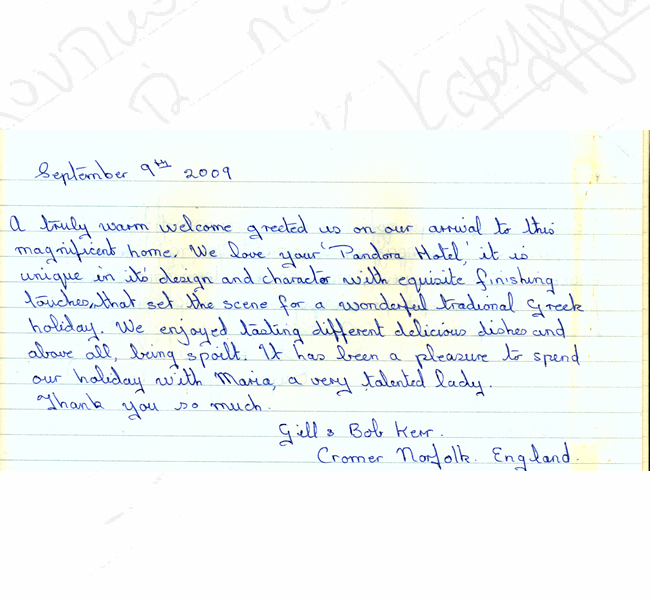 September 9th 2009
A truly warm welcome greeted us on our arrival to this
magnificent home. We love your 'Pandora Hotel', it is
unique in its' design and character with equisite finishing
touches, that set the scene for a wonderful tradional Greek
holiday. We enjoyed tasting different delicious dishes and
above all, being spoilt. It has been a pleasure to spend
our holiday with Maria, a very talented lady.
Thank you so much.
Gill & Bob Kerr.
Cromer Norfolk. England.